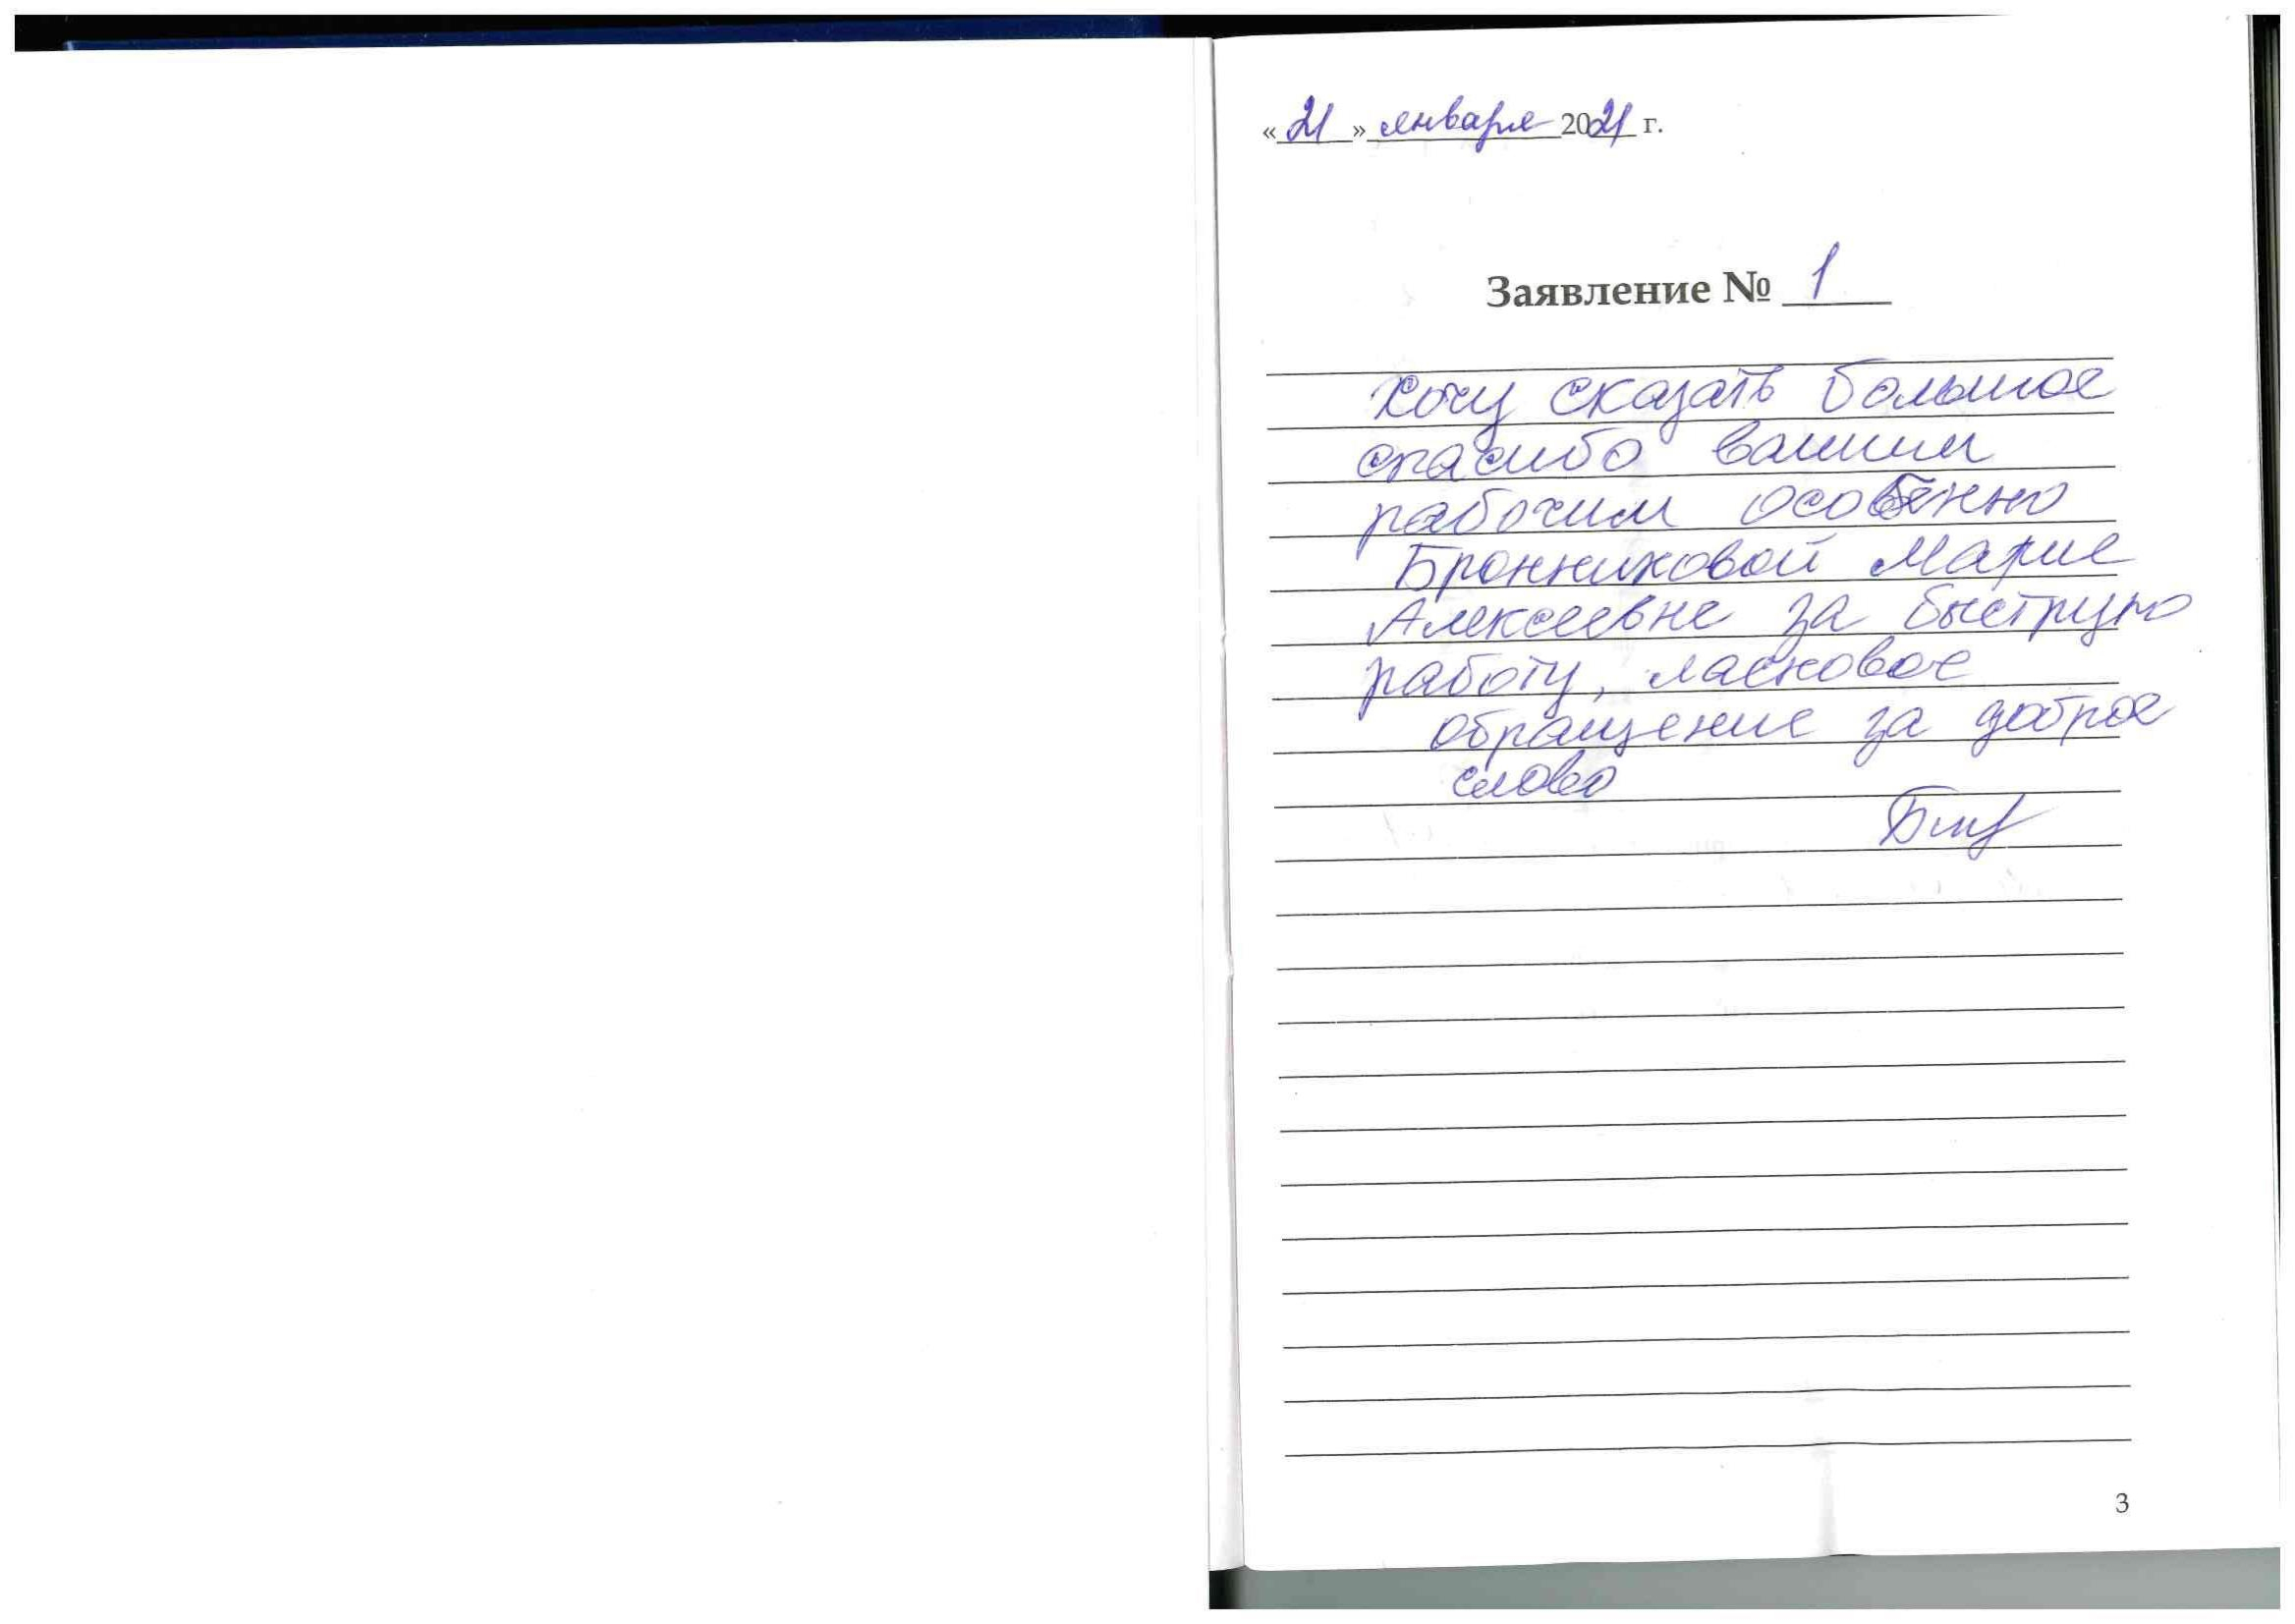 «21» января 2021 г.
Заявление № 1
Хочу сказать большое
спасибо вашим
рабочим особенно
Бронниковой Марие
Алексеевне за быструю
работу, ласковое
обращение за доброе
слово
3